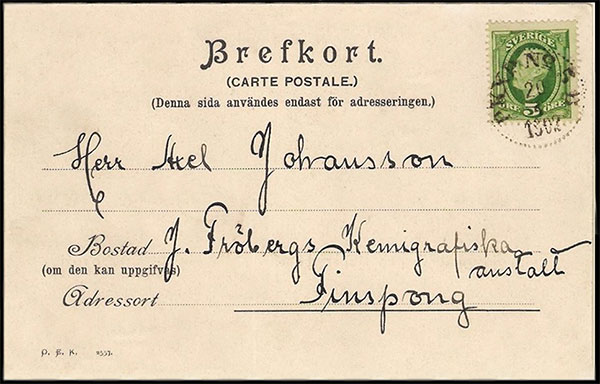 Brefkort.
(CARTE POSTALE.)
(Denna sida användes endast för adresseringen.)
SVERIGE
5
ÖRE
20
1902
Herr Axel Johansson
Bostad J. Fröbergs Kemigrafiska
(om den kan uppgifvas)
anstalt
Adressort Finspong